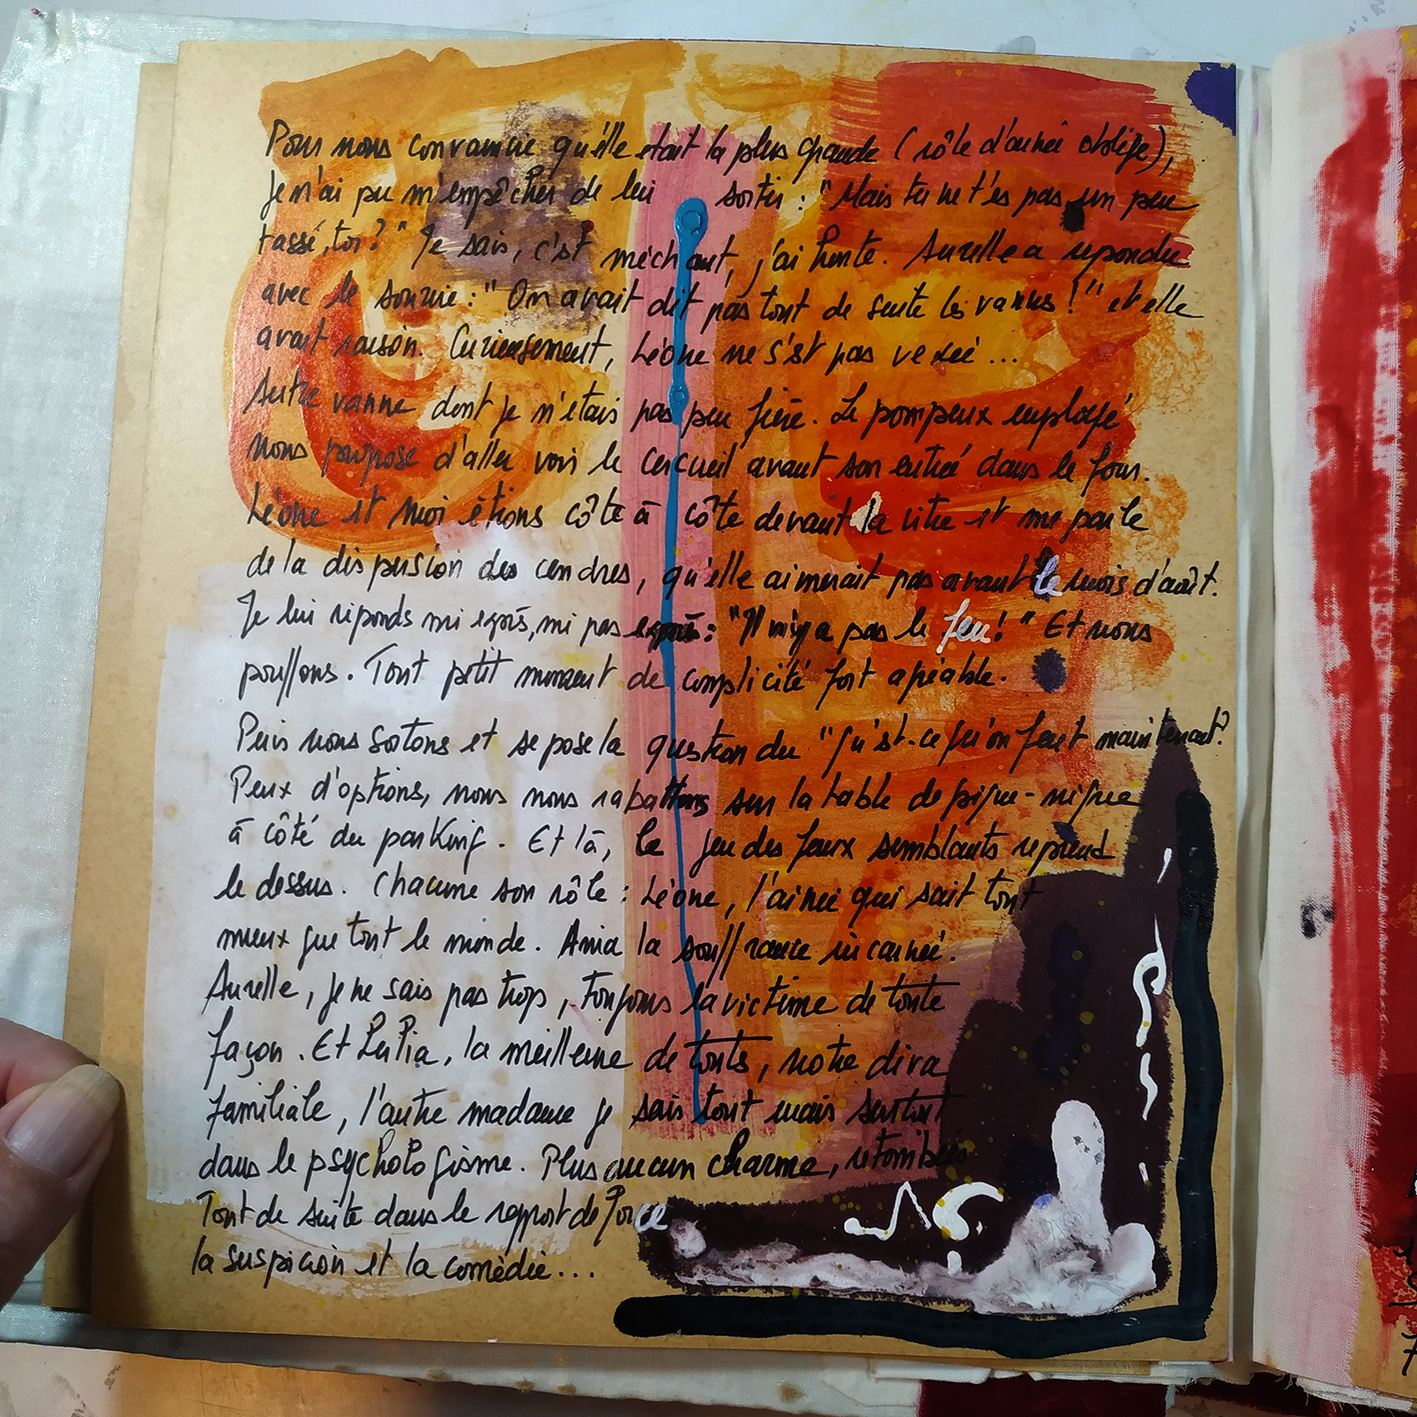 Pour nous convaincre qu'elle était la plus grande (rôle d'ainée oblige),
Je n'ai pu m'empêcher de lui sortir : "Mais tu ne t'es pas un peu
tassé, toi ? " Je sais, c'est méchant, j'ai honte. Aurelle a répondu
avec le sourire : "On avait dit pas tout de suite les vannes ! " et elle
avait raison. Curieusement, Léone ne s'est pas vexée ...
Autre vanne dont je n'étais pas peu fière. Le pompeux employé
nous propose d'aller voir le cercueil avant son entrée dans le four.
Léone et moi étions côte à côte devant la vitre et me parle
de la dispersion des cendres, qu'elle aimerait pas avant le mois d'août.
Je lui réponds mi exprès, mi pas exprès : "Il n'y a pas le feu ! " Et nous
pouffons. Tout petit moment de complicité fort agréable.
Puis nous sortons et se pose la question du "Qu'est-ce qu'on fait maintenant?
Peux d'options, nous nous rabattons sur la table de pique-nique
à côté du parking. Et là, le jeu des faux semblants reprend
le dessus. Chacune son rôle : Léone, l'ainée qui sait tout
mieux que tout le monde. Ania la souffrance incarnée.
Aurelle, je ne sais pas trop, toujours la victime de toute
façon. Et LuPia, la meilleure de touts, notre diva
familiale, l'autre madame je sais tout mais surtout
dans le psychologisme. Plus aucun charme, retombées
Tout de suite dans le rapport de force
la suspicion et la comédie...